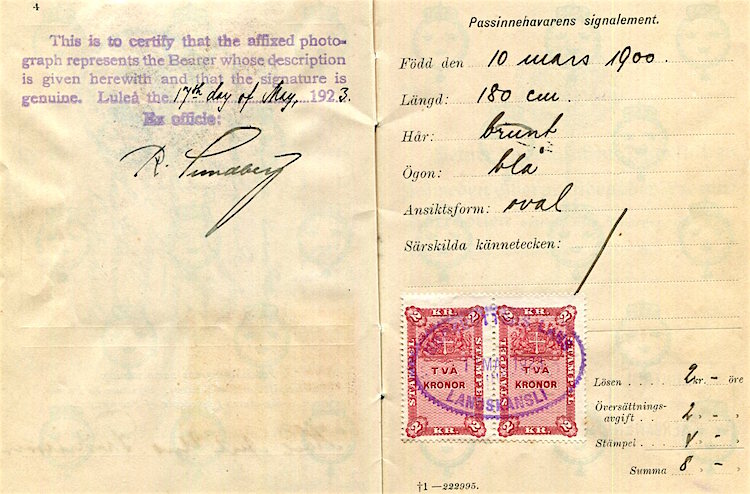 4
This is to certify that the affixed photo-
graph represents the Bearer whose description
is given herewith and that the signature is
genuine. Luleå the 17th day of May, 1923.
Ex officio:
R. Sundberg
Passinnehavarens signalement.
Född den 10 mars 1900.
Längd: 180 cm.
Hår: brunt
Ögon: blå
Ansiktsform: oval
Särskilda kännetecken: /
2 KR. 2 2 KR. 2
STÄMPEL STÄMPEL
TVÅ KRONOR TVÅ KRONOR
LANDSKANSLI
Lösen 2 kr. - öre
Översättnings-
avgift 2 „ - „
Stämpel 4 „ - „
Summa 8 „ - „
†1—222995.